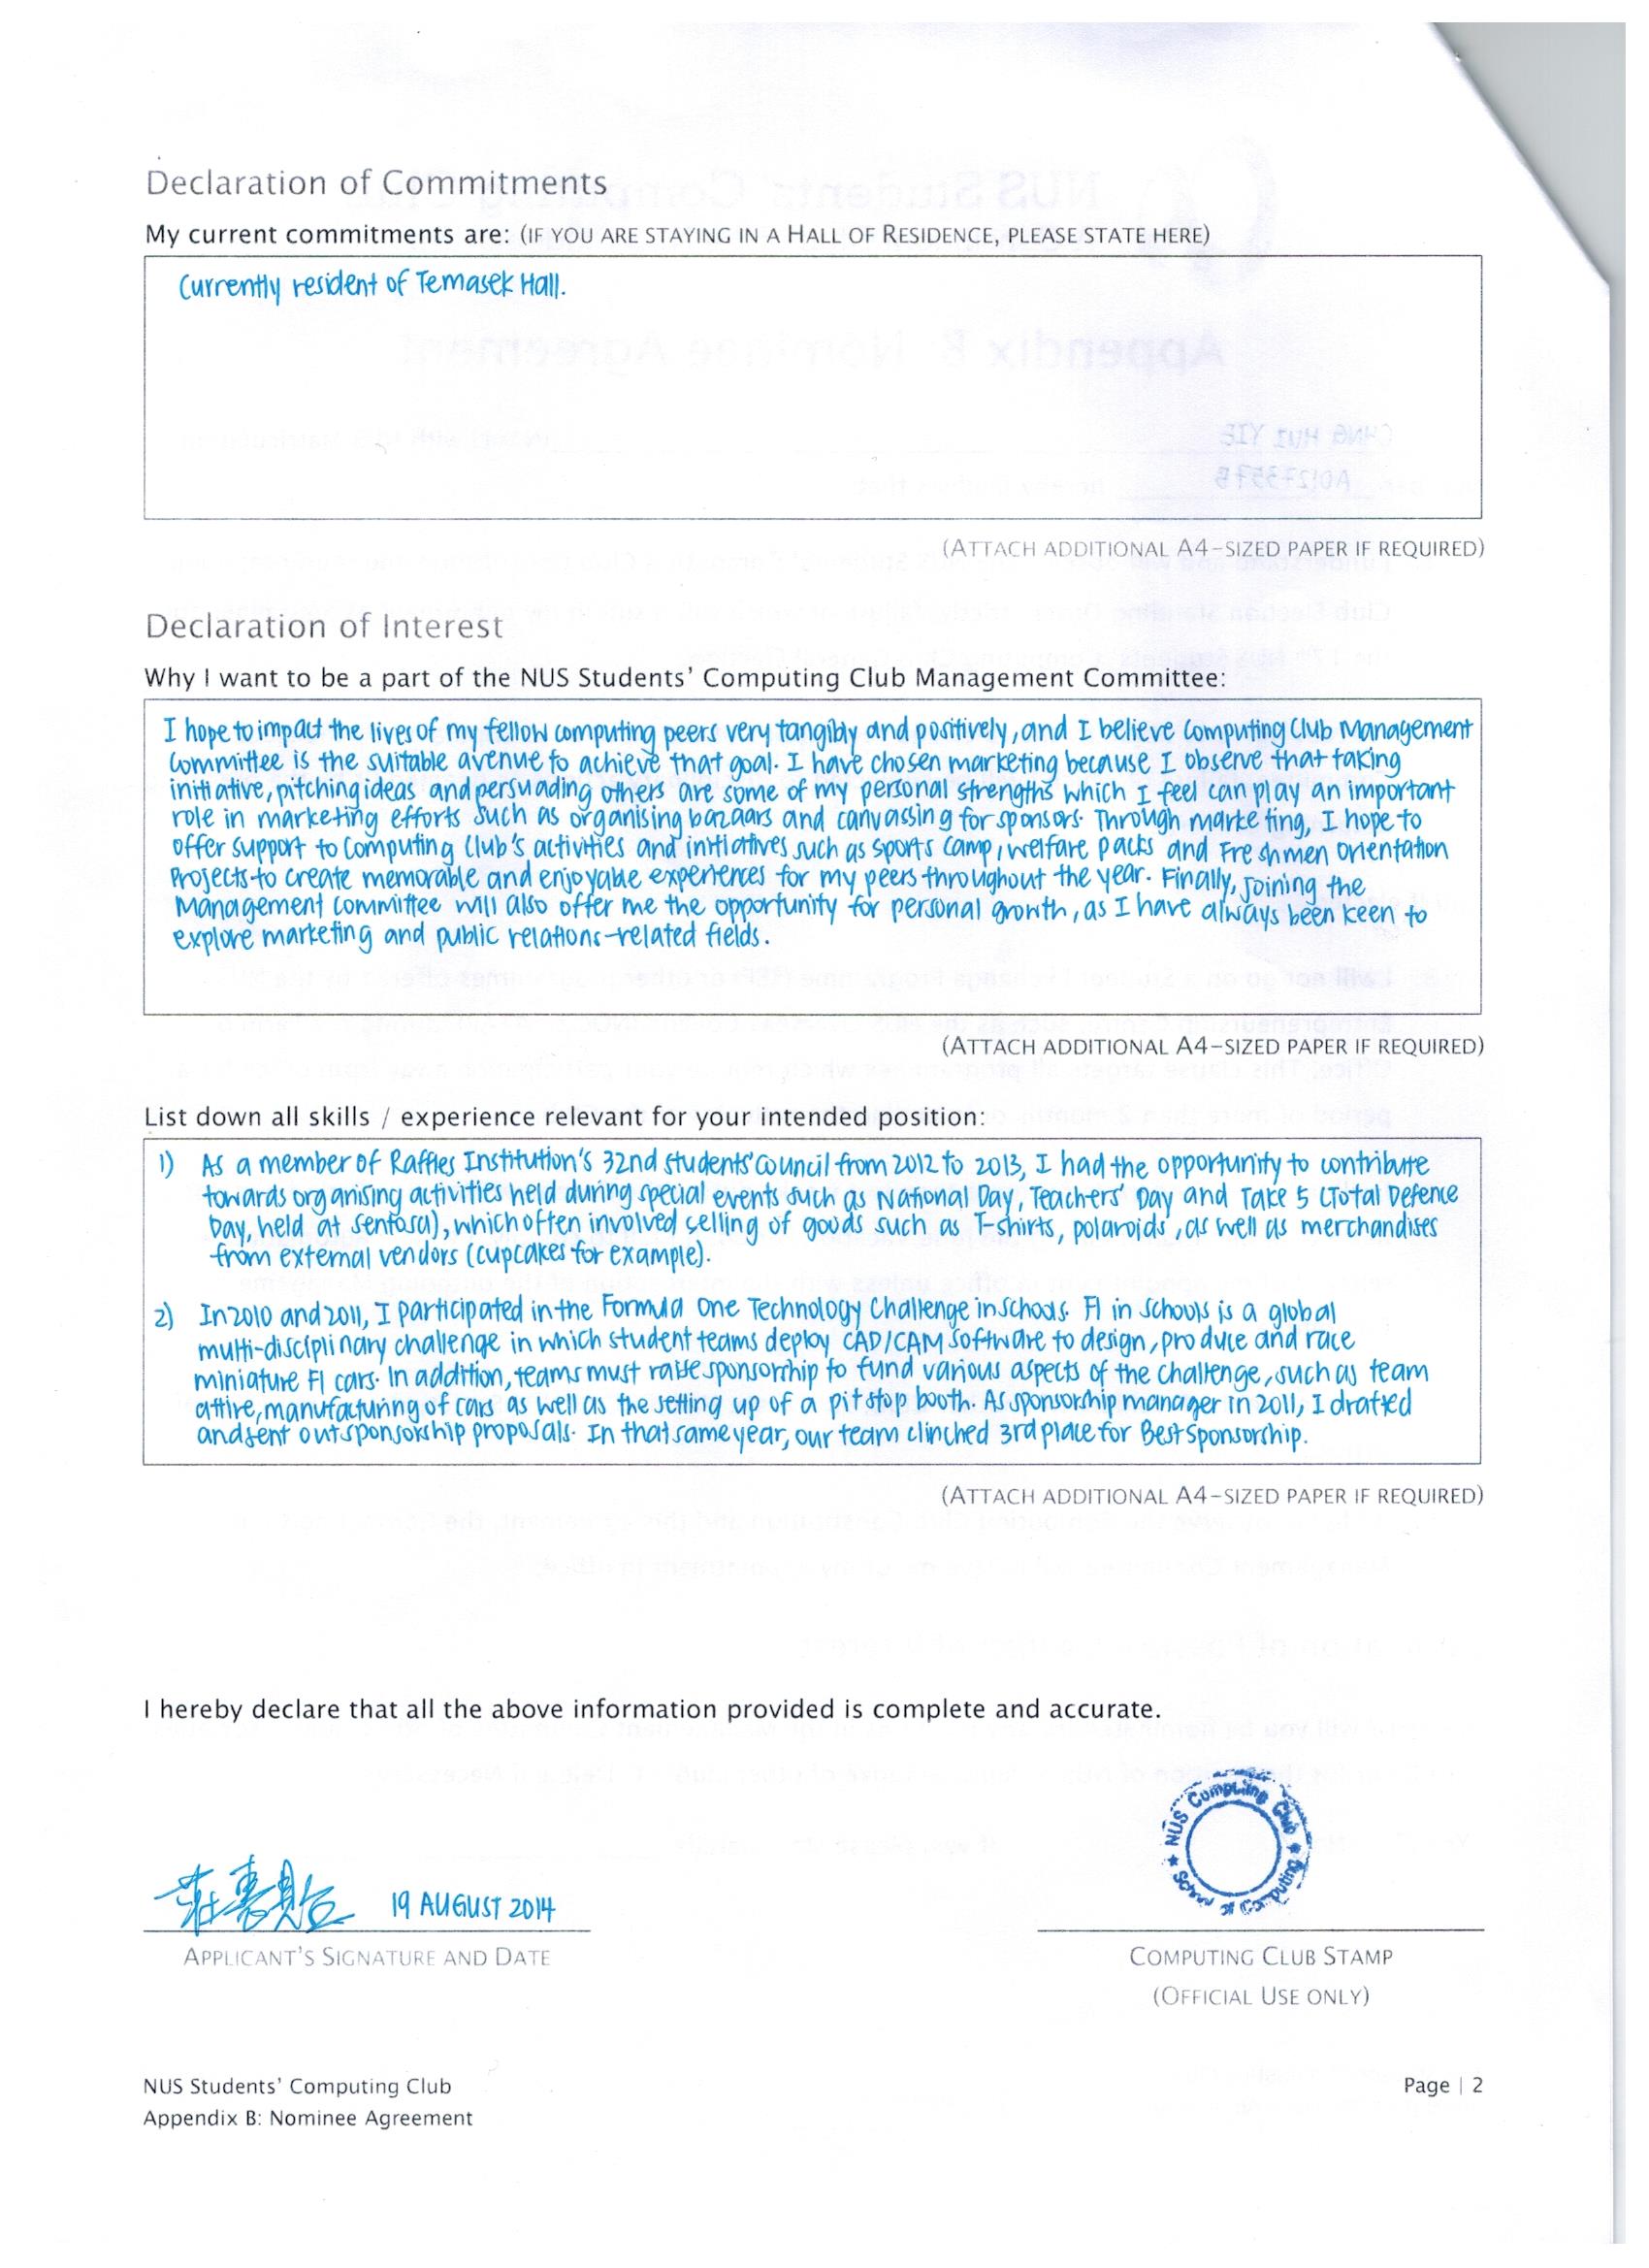 Declaration of Commitments
My current commitments are: (IF YOU ARE STAYING IN A HALL OF RESIDENCE, PLEASE STATE HERE)
Currently resident of Temasek Hall.
(ATTACH ADDITIONAL A4-SIZED PAPER IF REQUIRED)
Declaration of Interest
Why I want to be a part of the NUS Students' Computing Club Management Committee:
I hope to impact the lives of my fellow computing peers very tangibly and positively, and I believe Computing Club Management
Committee is the suitable avenue to achieve that goal. I have chosen marketing because I observe that taking
initiative, pitching ideas and persuading others are some of my personal strengths which I feel can play an important
role in marketing efforts such as organising bazaars and canvassing for sponsors. Through marketing, I hope to
offer support to Computing Club's activities and initiatives such as sports camp, welfare packs and Freshmen Orientation
Projects to create memorable and enjoyable experiences for my peers throughout the year. Finally, joining the
Management Committee will also offer me the opportunity for personal growth, as I have always been keen to
explore marketing and public relations-related fields.
(ATTACH ADDITIONAL A4-SIZED PAPER IF REQUIRED)
List down all skills / experience relevant for your intended position:
1) As a member of Raffles Institution's 32nd Students' Council from 2012 to 2013, I had the opportunity to contribute
towards organising activities held during special events such as National Day, Teachers' Day and Take 5 (Total Defence
Day, held at Sentosa), which often involved selling of goods such as T-shirts, polaroids, as well as merchandises
from external vendors (cupcakes for example).
2) In 2010 and 2011, I participated in the Formula One Technology Challenge in Schools. F1 in Schools is a global
multi-disciplinary challenge in which student teams deploy CAD/CAM software to design, produce and race
miniature F1 cars. In addition, teams must raise sponsorship to fund various aspects of the challenge, such as team
attire, manufacturing of cars as well as the setting up of a pit stop booth. As sponsorship manager in 2011, I drafted
and sent out sponsorship proposals. In that same year, our team clinched 3rd place for Best Sponsorship.
(ATTACH ADDITIONAL A4-SIZED PAPER IF REQUIRED)
I hereby declare that all the above information provided is complete and accurate.
NUS Computing Club
School of Computing
莊惠貽 19 AUGUST 2014
APPLICANT'S SIGNATURE AND DATE
COMPUTING CLUB STAMP
(OFFICIAL USE ONLY)
NUS Students' Computing Club
Page | 2
Appendix B: Nominee Agreement